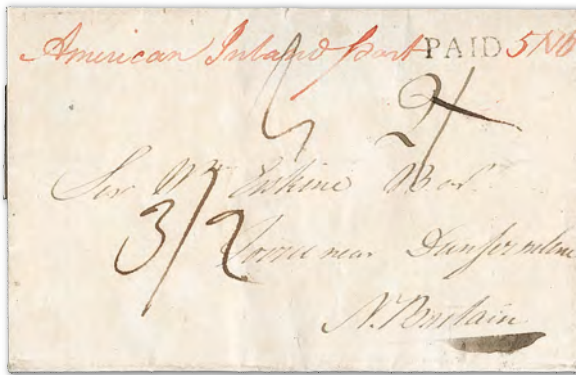 American Inland Post PAID 5 N6
2/
Sir Wm Erskine Bart
3/2
Torrie near Dunfermline
N. Britain